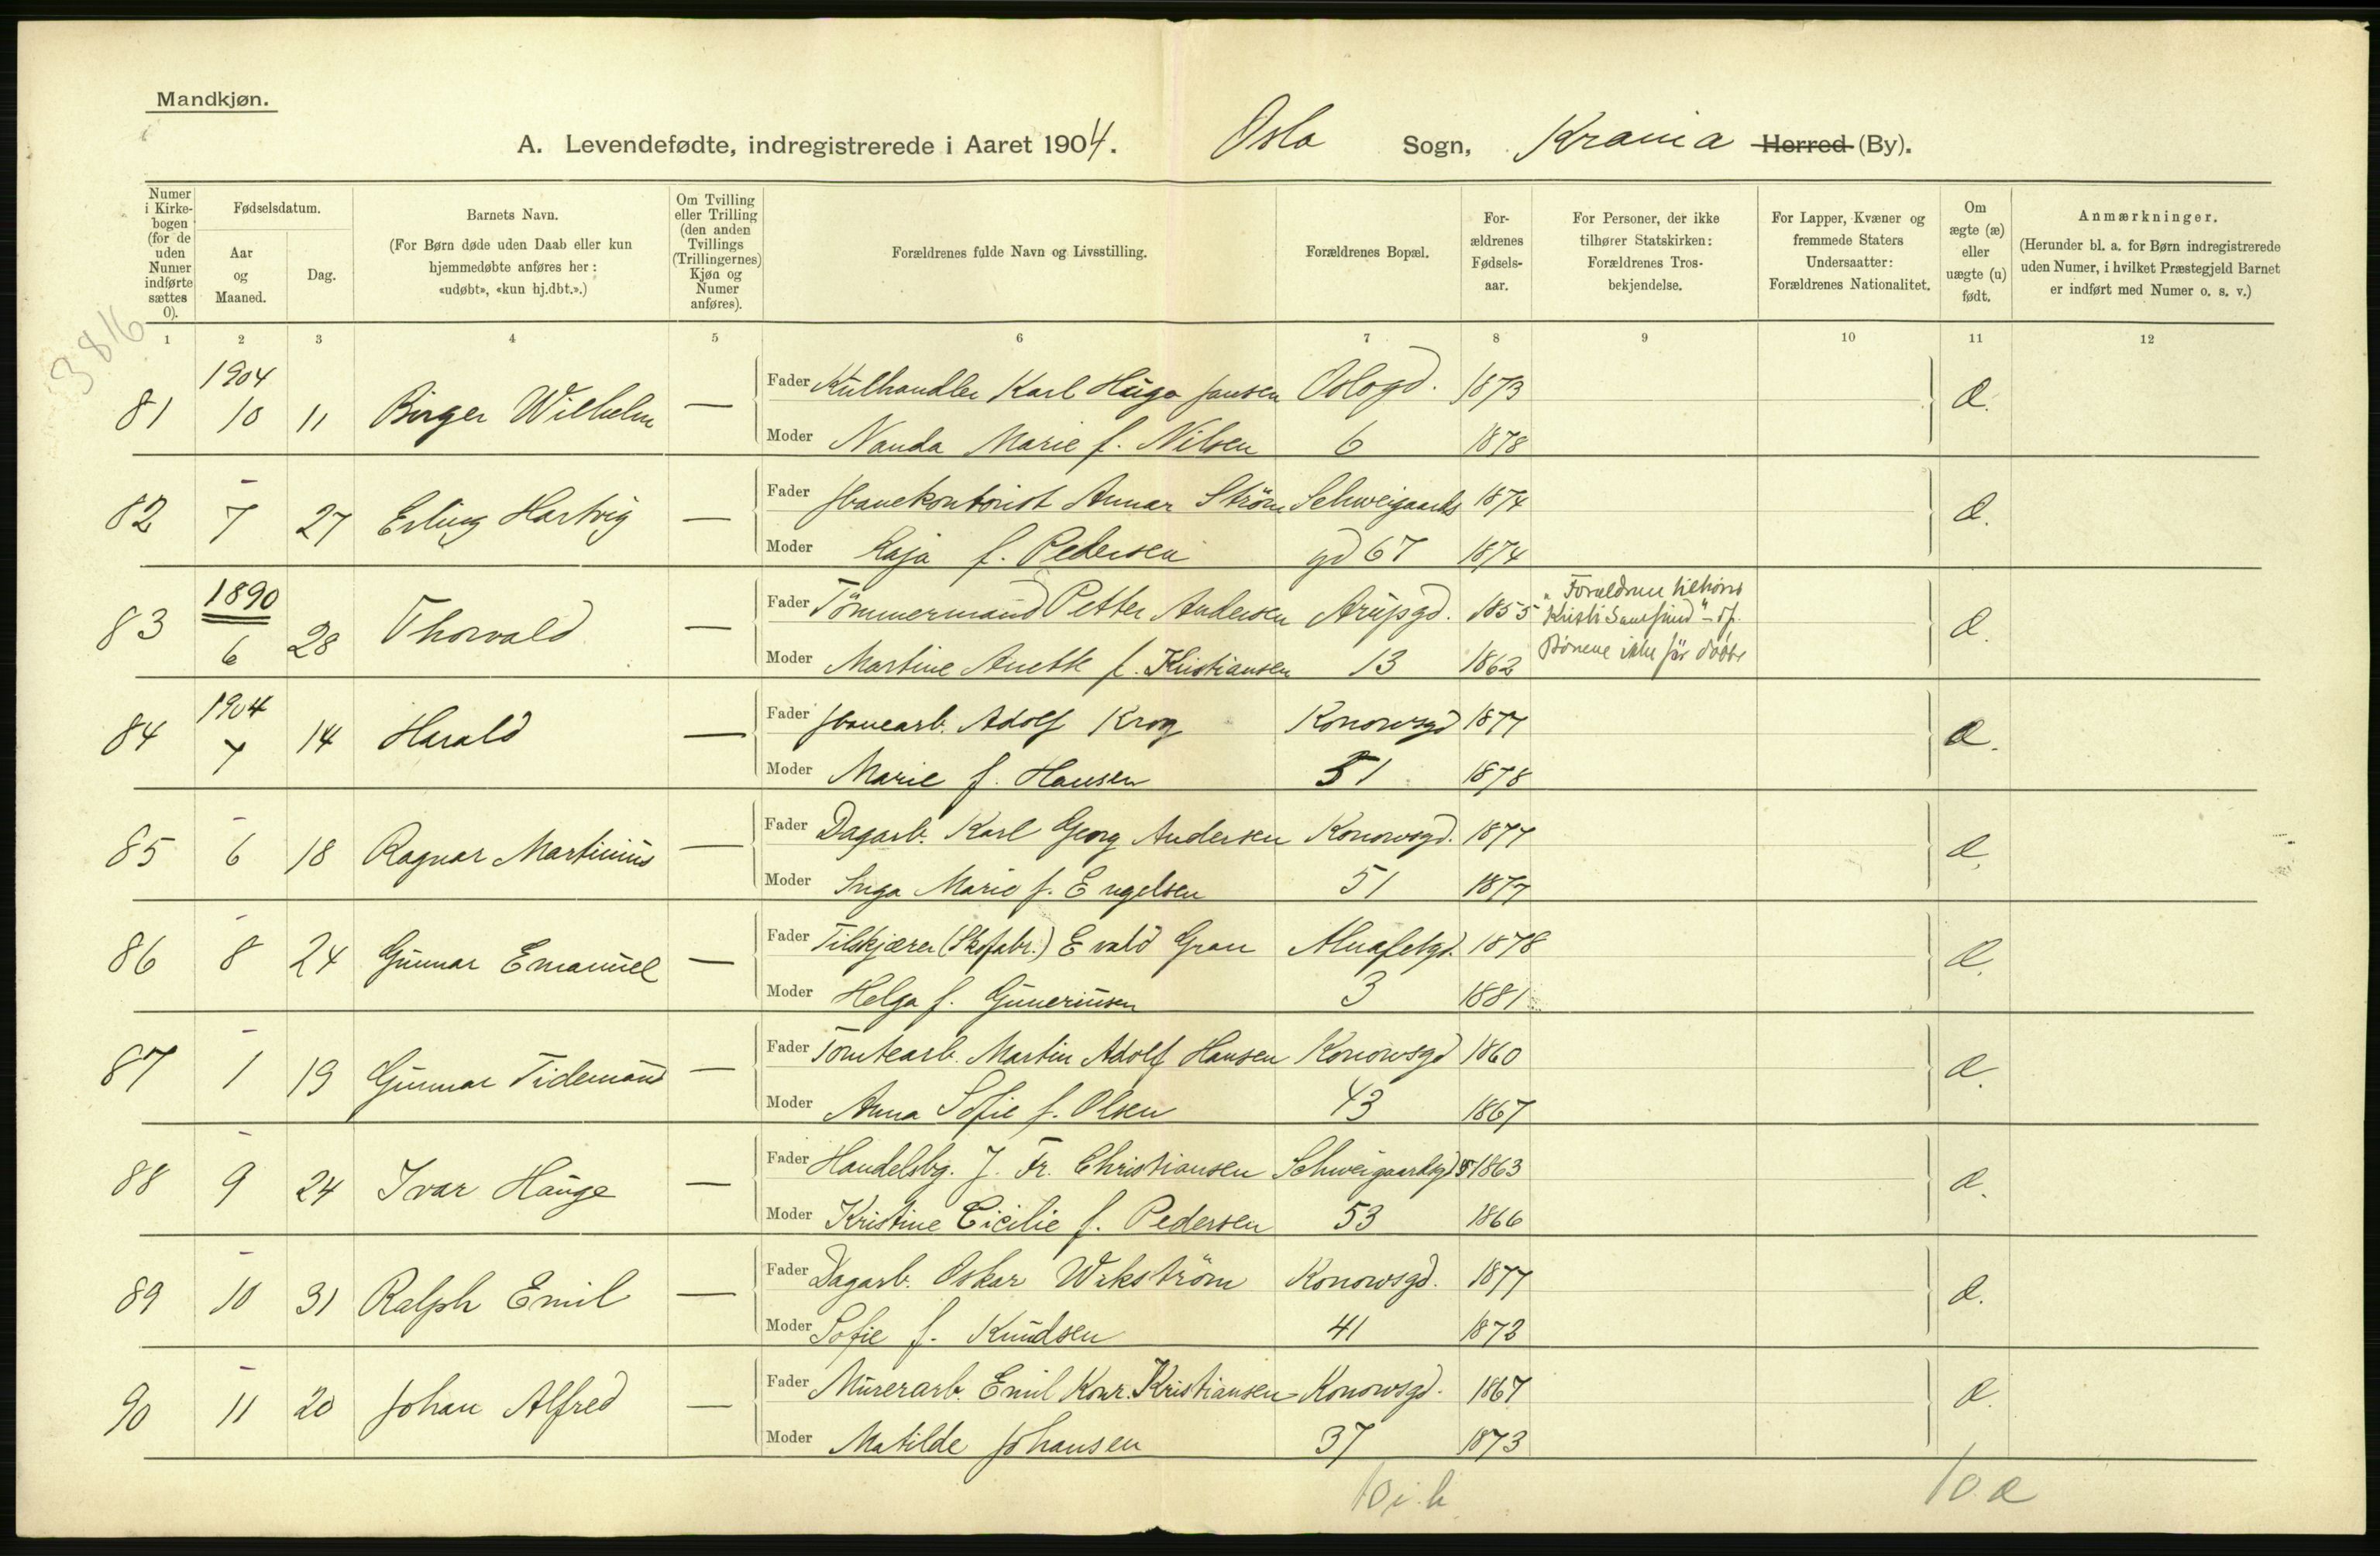 Mandkjøn.
A. Levendefødte, indregistrerede i Aaret 1904. Oslo Sogn, Krania Herred (By).
Numer i Kirkebogen (for de uden Numer indførte sættes 0).
Fødselsdatum.
Aar og Maaned.
Dag.
Barnets Navn.
(For Børn døde uden Daab eller kun hjemmedøbte anføres her: «udøbt», «kun hj.dbt.».)
Om Tvilling eller Trilling (den anden Tvillings (Trillingernes) Kjøn og Numer anføres).
Forældrenes fulde Navn og Livsstilling.
Forældrenes Bopæl.
Forældrenes Fødselsaar.
For Personer, der ikke tilhører Statskirken: Forældrenes Trosbekjendelse.
For Lapper, Kvæner og fremmede Staters Undersaatter: Forældrenes Nationalitet.
Om ægte (æ) eller uægte (u) født.
Anmærkninger.
(Herunder bl. a. for Børn indregistrerede uden Numer, i hvilket Præstegjeld Barnet er indført med Numer o. s. v.)
1 2 3 4 5 6 7 8 9 10 11 12
3816
1904
81 10 11 Birger Wilhelm — Fader Kulhandler Karl Hugo Jansen Oslogd. 1873 æ.
Moder Nanda Marie f. Nilsen 6 1878
82 7 27 Erling Hartvig — Fader Jbanekontorist Annar Ström Schweigaards 1874 æ.
Moder Kaja f. Pedersen gd 67 1874
83 1890 6 28 Thorvald — Fader Tömmermand Petter Andersen Arupgd. 1855 „Forældrene tilhörer Kristi Samfund" æ.
Moder Martine Anette f. Kristiansen 13 1862 Börnene ikke før döbt
84 1904 7 14 Harald — Fader Jbanearb. Adolf Krog Konowsgd 1877 æ.
Moder Marie f. Hansen 51 1878
85 6 18 Ragnar Martinius — Fader Dagarb. Karl Georg Andersen Konowsgd. 1877 æ.
Moder Inga Marie f. Engelsen 51 1877
86 8 24 Gunnar Emanuel — Fader Tilskjærer (Skofabr.) Evald Gran Alnafetgd. 1878 æ.
Moder Helga f. Guneriusen 3 1881
87 1 19 Gunnar Tidemand — Fader Tomtearb. Martin Adolf Hansen Konowsgd 1860 æ.
Moder Anna Sofie f. Olsen 43 1867
88 9 24 Ivar Hauge — Fader Handelsbg. J. Fr. Christiansen Schweigaardsgd 1863 æ.
Moder Kristine Cicilie f. Pedersen 53 1866
89 10 31 Ralph Emil — Fader Dagarb. Oskar Wikström Konowsgd. 1877 æ.
Moder Sofie f. Knudsen 41 1873
90 11 20 Johan Alfred — Fader Murerarb. Emil Konr. Kristiansen Konowsgd. 1867 æ.
Moder Matilde Johansen 37 1873
10 i. b 10 æ